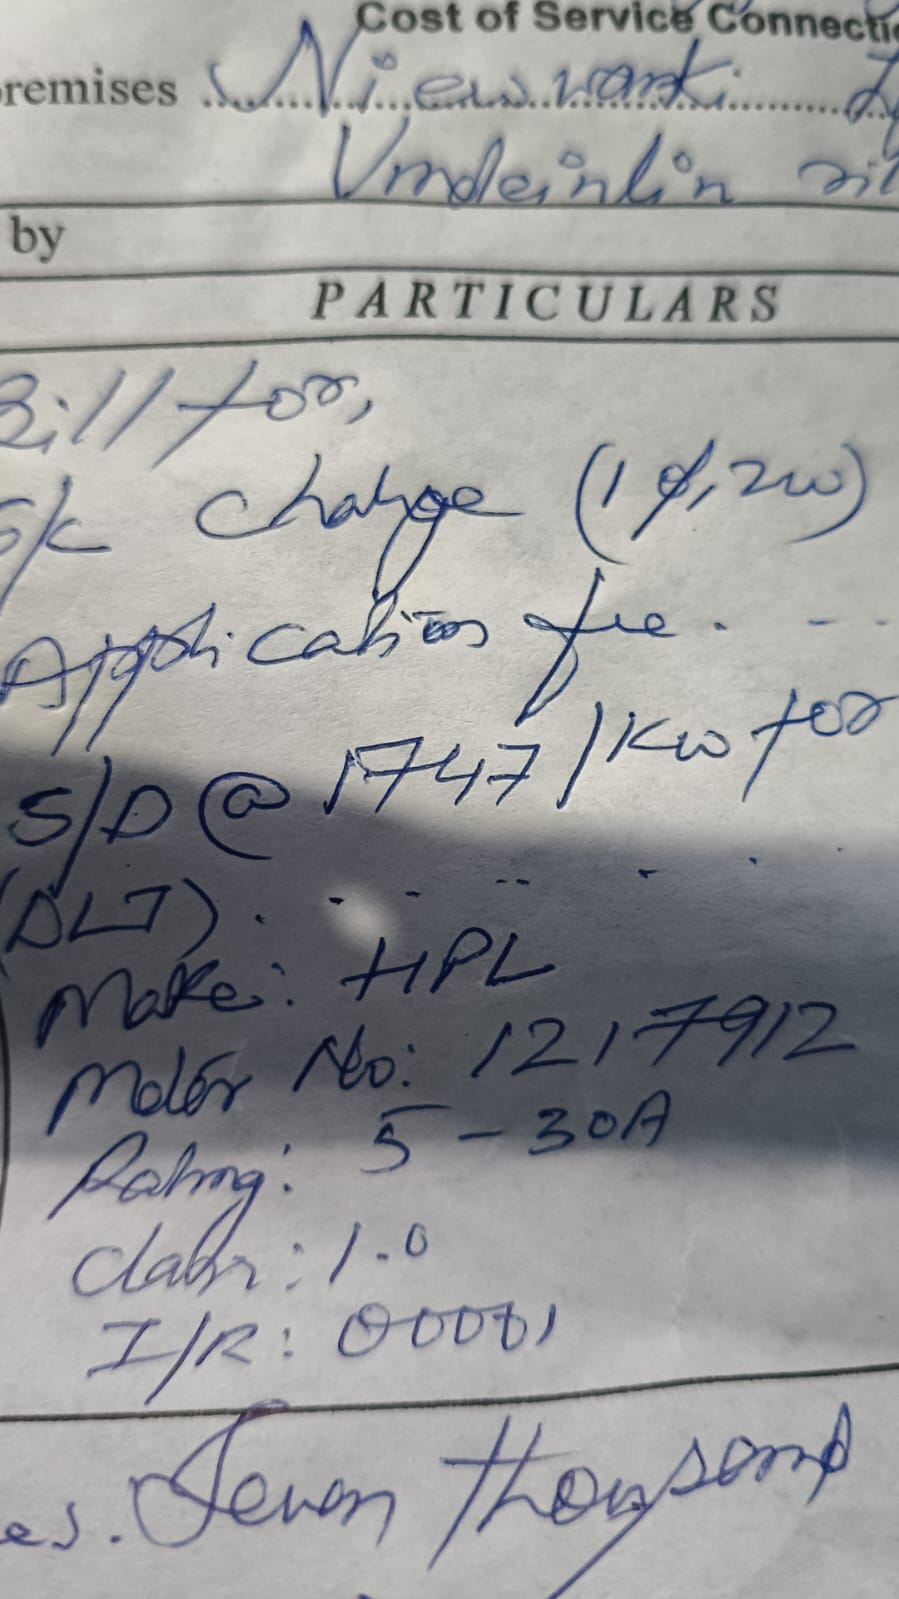 Cost of Service Connecti
remises ........................
by
PARTICULARS
Bill for,
S/c charge (1φ, 2w)
Application fee. ...
S/D @ 1747/KW for
(DLJ). . . .
Make: HPL
Meter No: 1217912
Rating: 5-30A
Class: 1.0
I/R:
es. Seven thousand